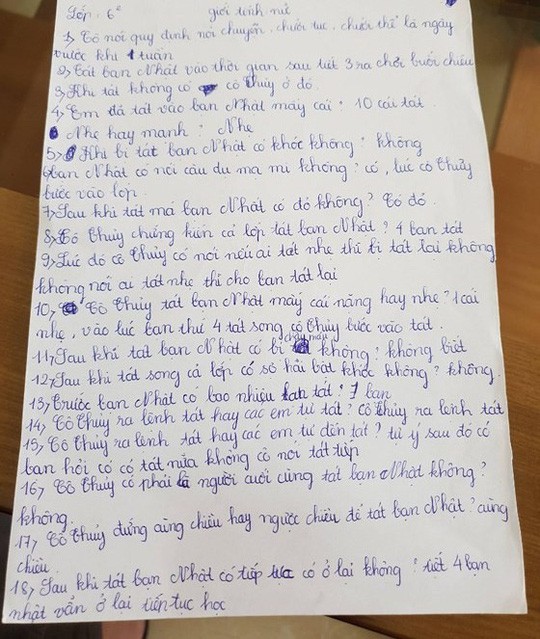 Lớp: 6² giới tính nữ
1, Cô nói quy định nói chuyện, chửi tục, chửi thề là ngày
trước khi 1 tuần
2, Tát bạn Nhật vào thời gian sau tiết 3 ra chơi buổi chiều
3, Khi tát không có cô Thủy ở đó.
4, Em đã tát vào bạn Nhật mấy cái? 10 cái tát
Nhẹ hay mạnh? Nhẹ
5, Khi bị tát bạn Nhật có khóc không? không
6, bạn Nhật có nói câu đu ma mi không? có, lúc cô Thủy
bước vào lớp.
7, Sau khi tát má bạn Nhật có đỏ không? Có đỏ.
8, Cô Thủy chứng kiến cả lớp tát bạn Nhật? 4 bạn tát
9, Lúc đó cô Thủy có nói nếu ai tát nhẹ thì bị tát lại không
không nói ai tát nhẹ thì cho bạn tát lại
10, Cô Thủy tát bạn Nhật mấy cái nặng hay nhẹ? 1 cái
nhẹ, vào lúc bạn thứ 4 tát song cô Thủy bước vào tát.
11, Sau khi tát bạn Nhật có bị chảy máu không? không biết
12, Sau khi tát song cả lớp có sợ hãi bật khóc không? không.
13, Trước bạn Nhật có bao nhiêu bạn tát? 7 bạn
14, Cô Thủy ra lệnh tát hay các em tự tát? cô Thủy ra lệnh tát
15, Cô Thủy ra lệnh tát hay các em tự đến tát? tự ý sau đó có
bạn hỏi cô có tát nữa không cô nói tát tiếp
16, Cô Thủy có phải là người cuối cùng tát bạn Nhật không?
không.
17, Cô Thủy đứng cùng chiều hay ngược chiều để tát bạn Nhật? cùng
chiều.
18, Sau khi tát bạn Nhật có tiếp tục có ở lại không? tiết 4 bạn
nhật vẫn ở lại tiếp tục học